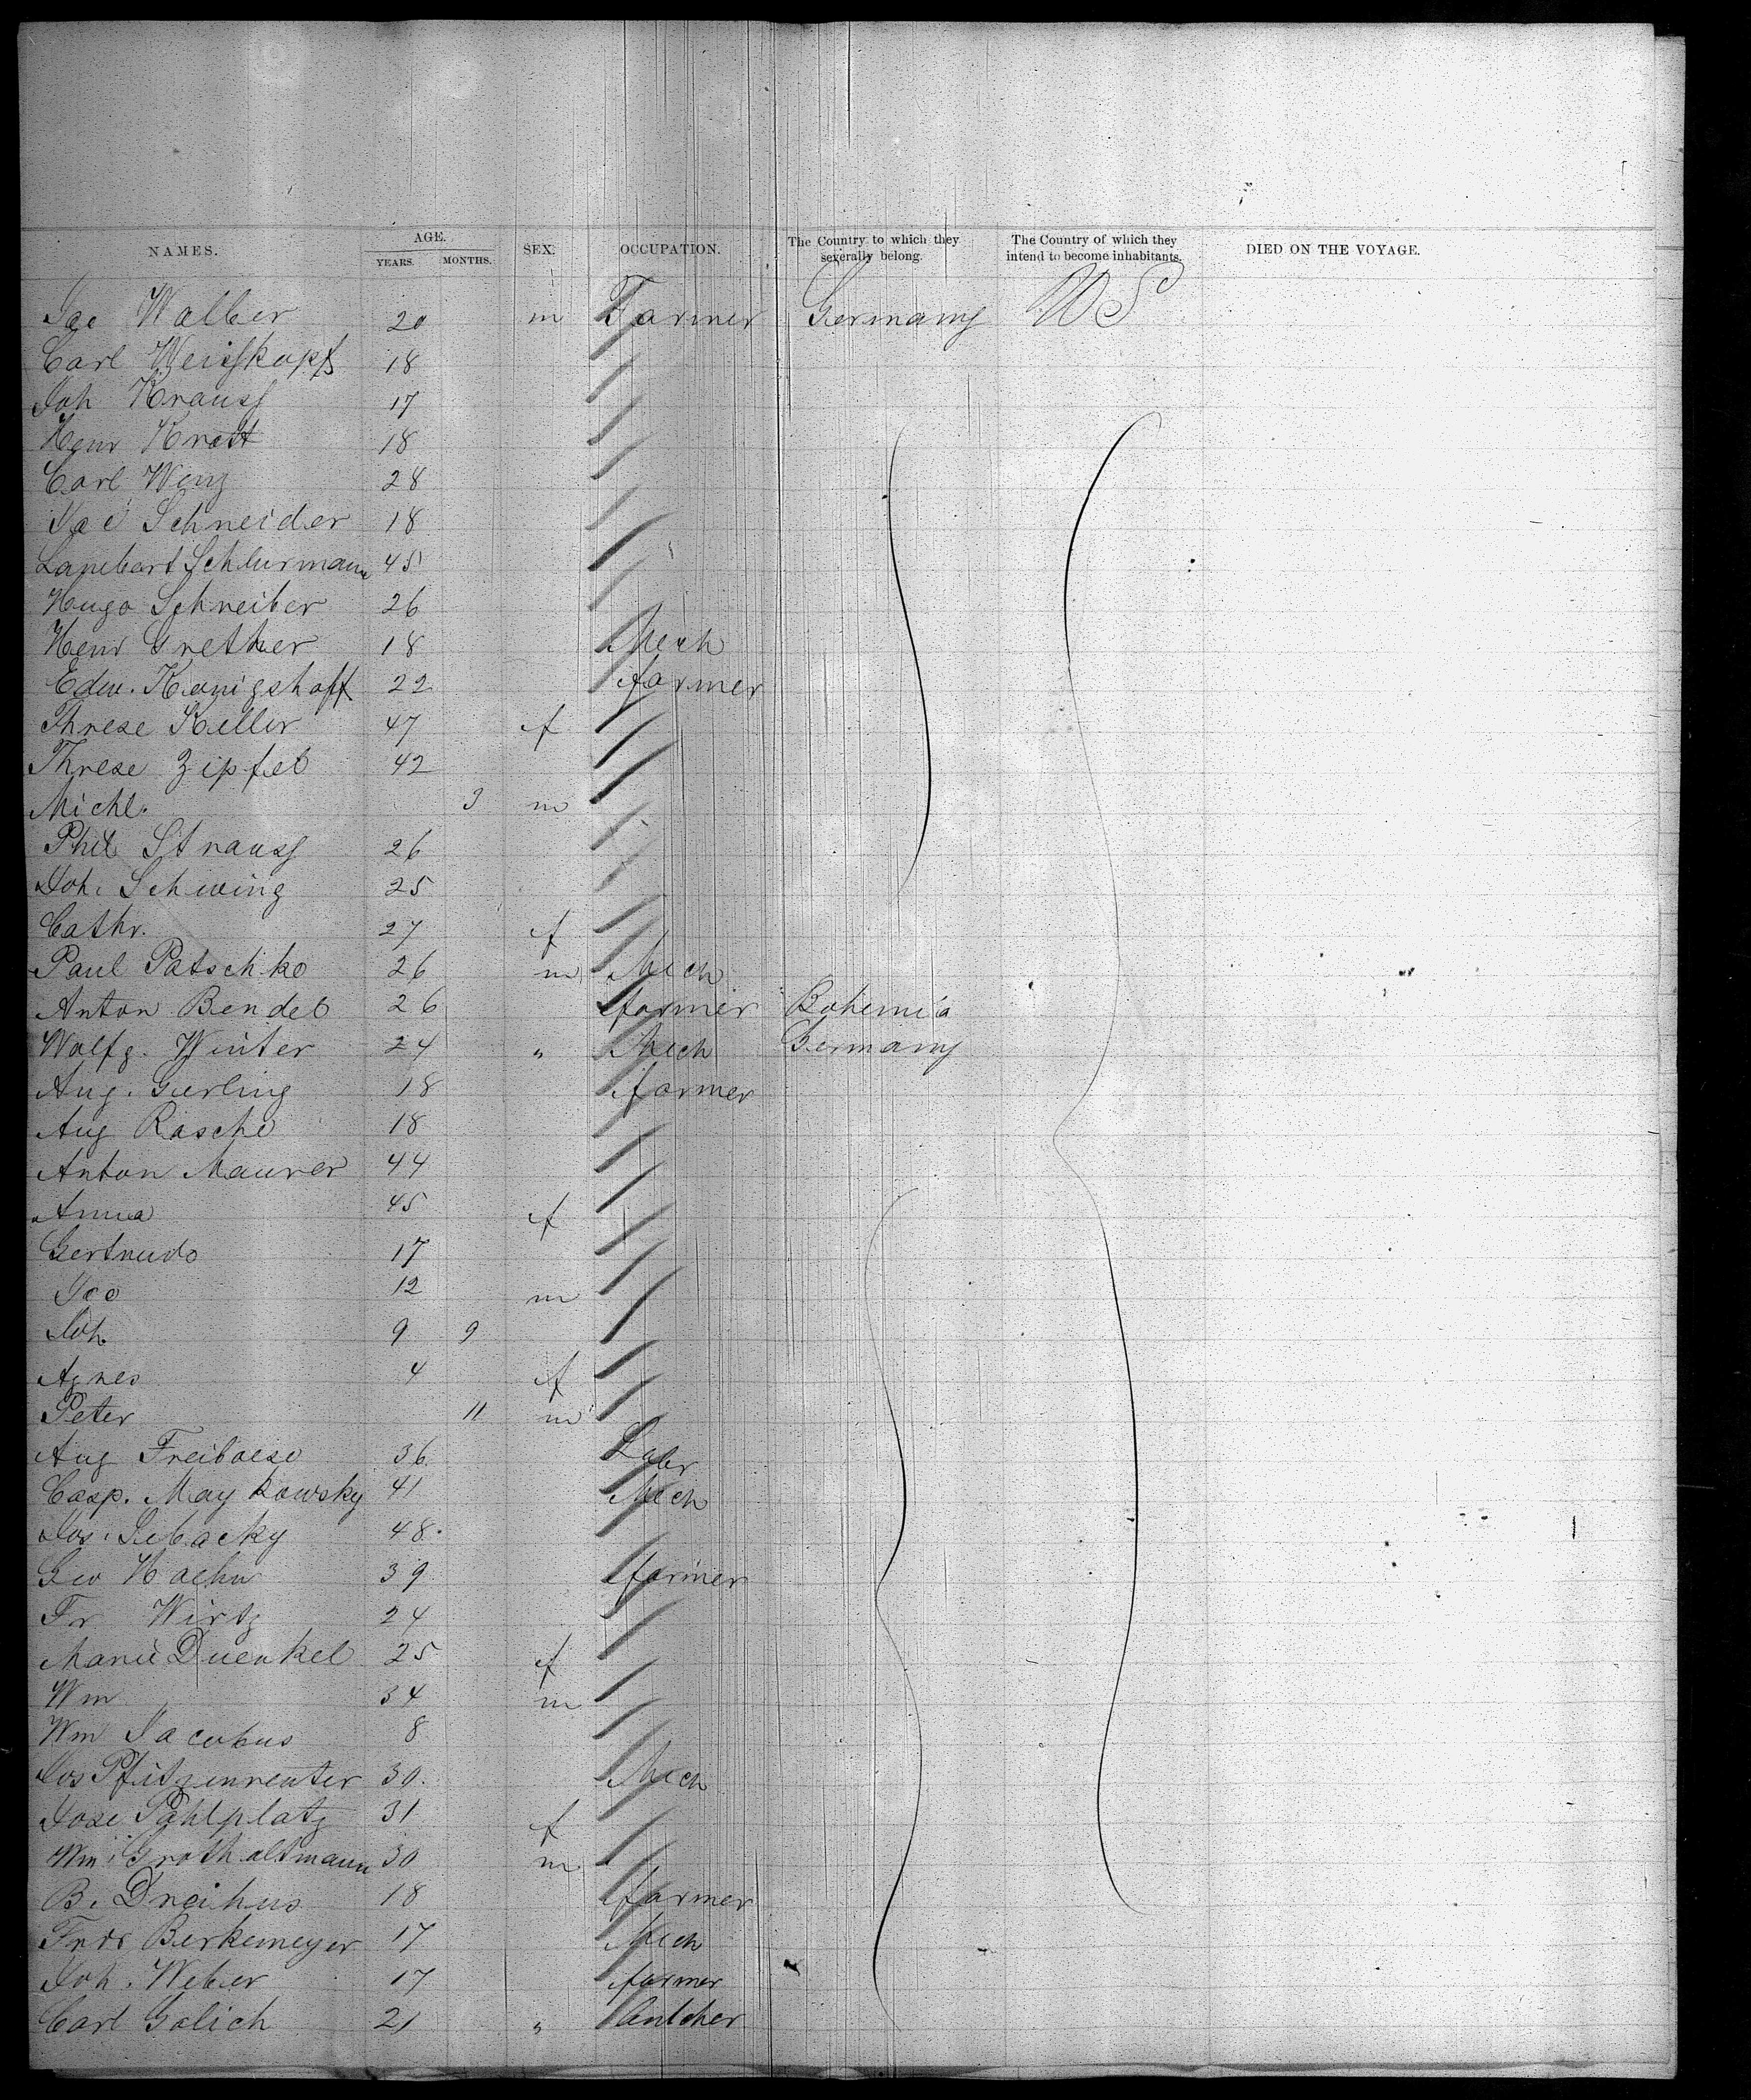 NAMES. AGE. YEARS. MONTHS. SEX. OCCUPATION. The Country to which they severally belong. The Country of which they intend to become inhabitants. DIED ON THE VOYAGE.
Jac Walber 20 m Farmer Germany US
Carl Weisskopf 18
Joh Krauss 17
Henr Kratt 18
Carl Weng 28
Jac Schneider 18
Lambert Schlurmann 45
Hugo Schreiber 26
Henr Grether 18 Mech
Edw. Konigshoff 22 farmer
Threse Keller 47 f
Threse Zipfel 42
Michl. 3 m
Phil Strauss 26
Joh. Schwing 25
Cathr. 27 f
Paul Patschke 26 m Mech
Anton Bendel 26 farmer Bohemia
Wolfg. Winter 24 " Mech Germany
Aug. Gerling 18 farmer
Aug Rasche 18
Anton Maurer 44
Anna 45 f
Gertrude 17
Jac 12 m
Joh. 9 9
Agnes 4 f
Peter 11 m
Aug Freiboese 36 Labr
Casp. Maykowsky 41 Mech
Jos. Sebacky 48
Geo Haehn 39 farmer
Fr Wirtz 24
Marie Duenkel 25 f
Wm 34 m
Wm Jacobus 8
Jos Pfitzenreuter 30. Mech
Jose Pahlplatz 31 f
Wm. Grothaltmann 30 m
B. Dreihus 18 farmer
Fred Berkemeyer 17 Mech
Joh. Weber 17 farmer
Carl Golich 21 " Butcher